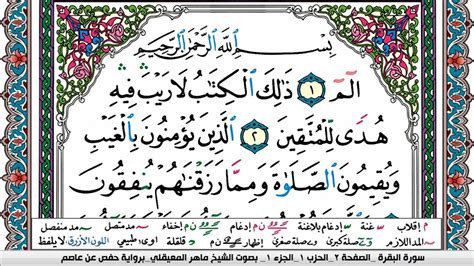 بِسْمِ ٱللَّهِ ٱلرَّحْمَٰنِ ٱلرَّحِيمِ
الٓمٓ ١ ذَٰلِكَ ٱلْكِتَٰبُ لَا رَيْبَ فِيهِ
هُدًى لِّلْمُتَّقِينَ ٢ ٱلَّذِينَ يُؤْمِنُونَ بِٱلْغَيْبِ
وَيُقِيمُونَ ٱلصَّلَوٰةَ وَمِمَّا رَزَقْنَٰهُمْ يُنفِقُونَ
م إقلاب غنة إدغام بلاغنة ن م إدغام ن م إخفاء مد متصل مد منفصل
المد اللازم صلة كبرى صلة صغرى إظهار ن م قلقلة مد طبيعي اللون الأزرق لا يلفظ
سورة البقرة _الصفحة ٢_الحزب ١_الجزء ١_ بصوت الشيخ ماهر المعيقلي_برواية حفص عن عاصم